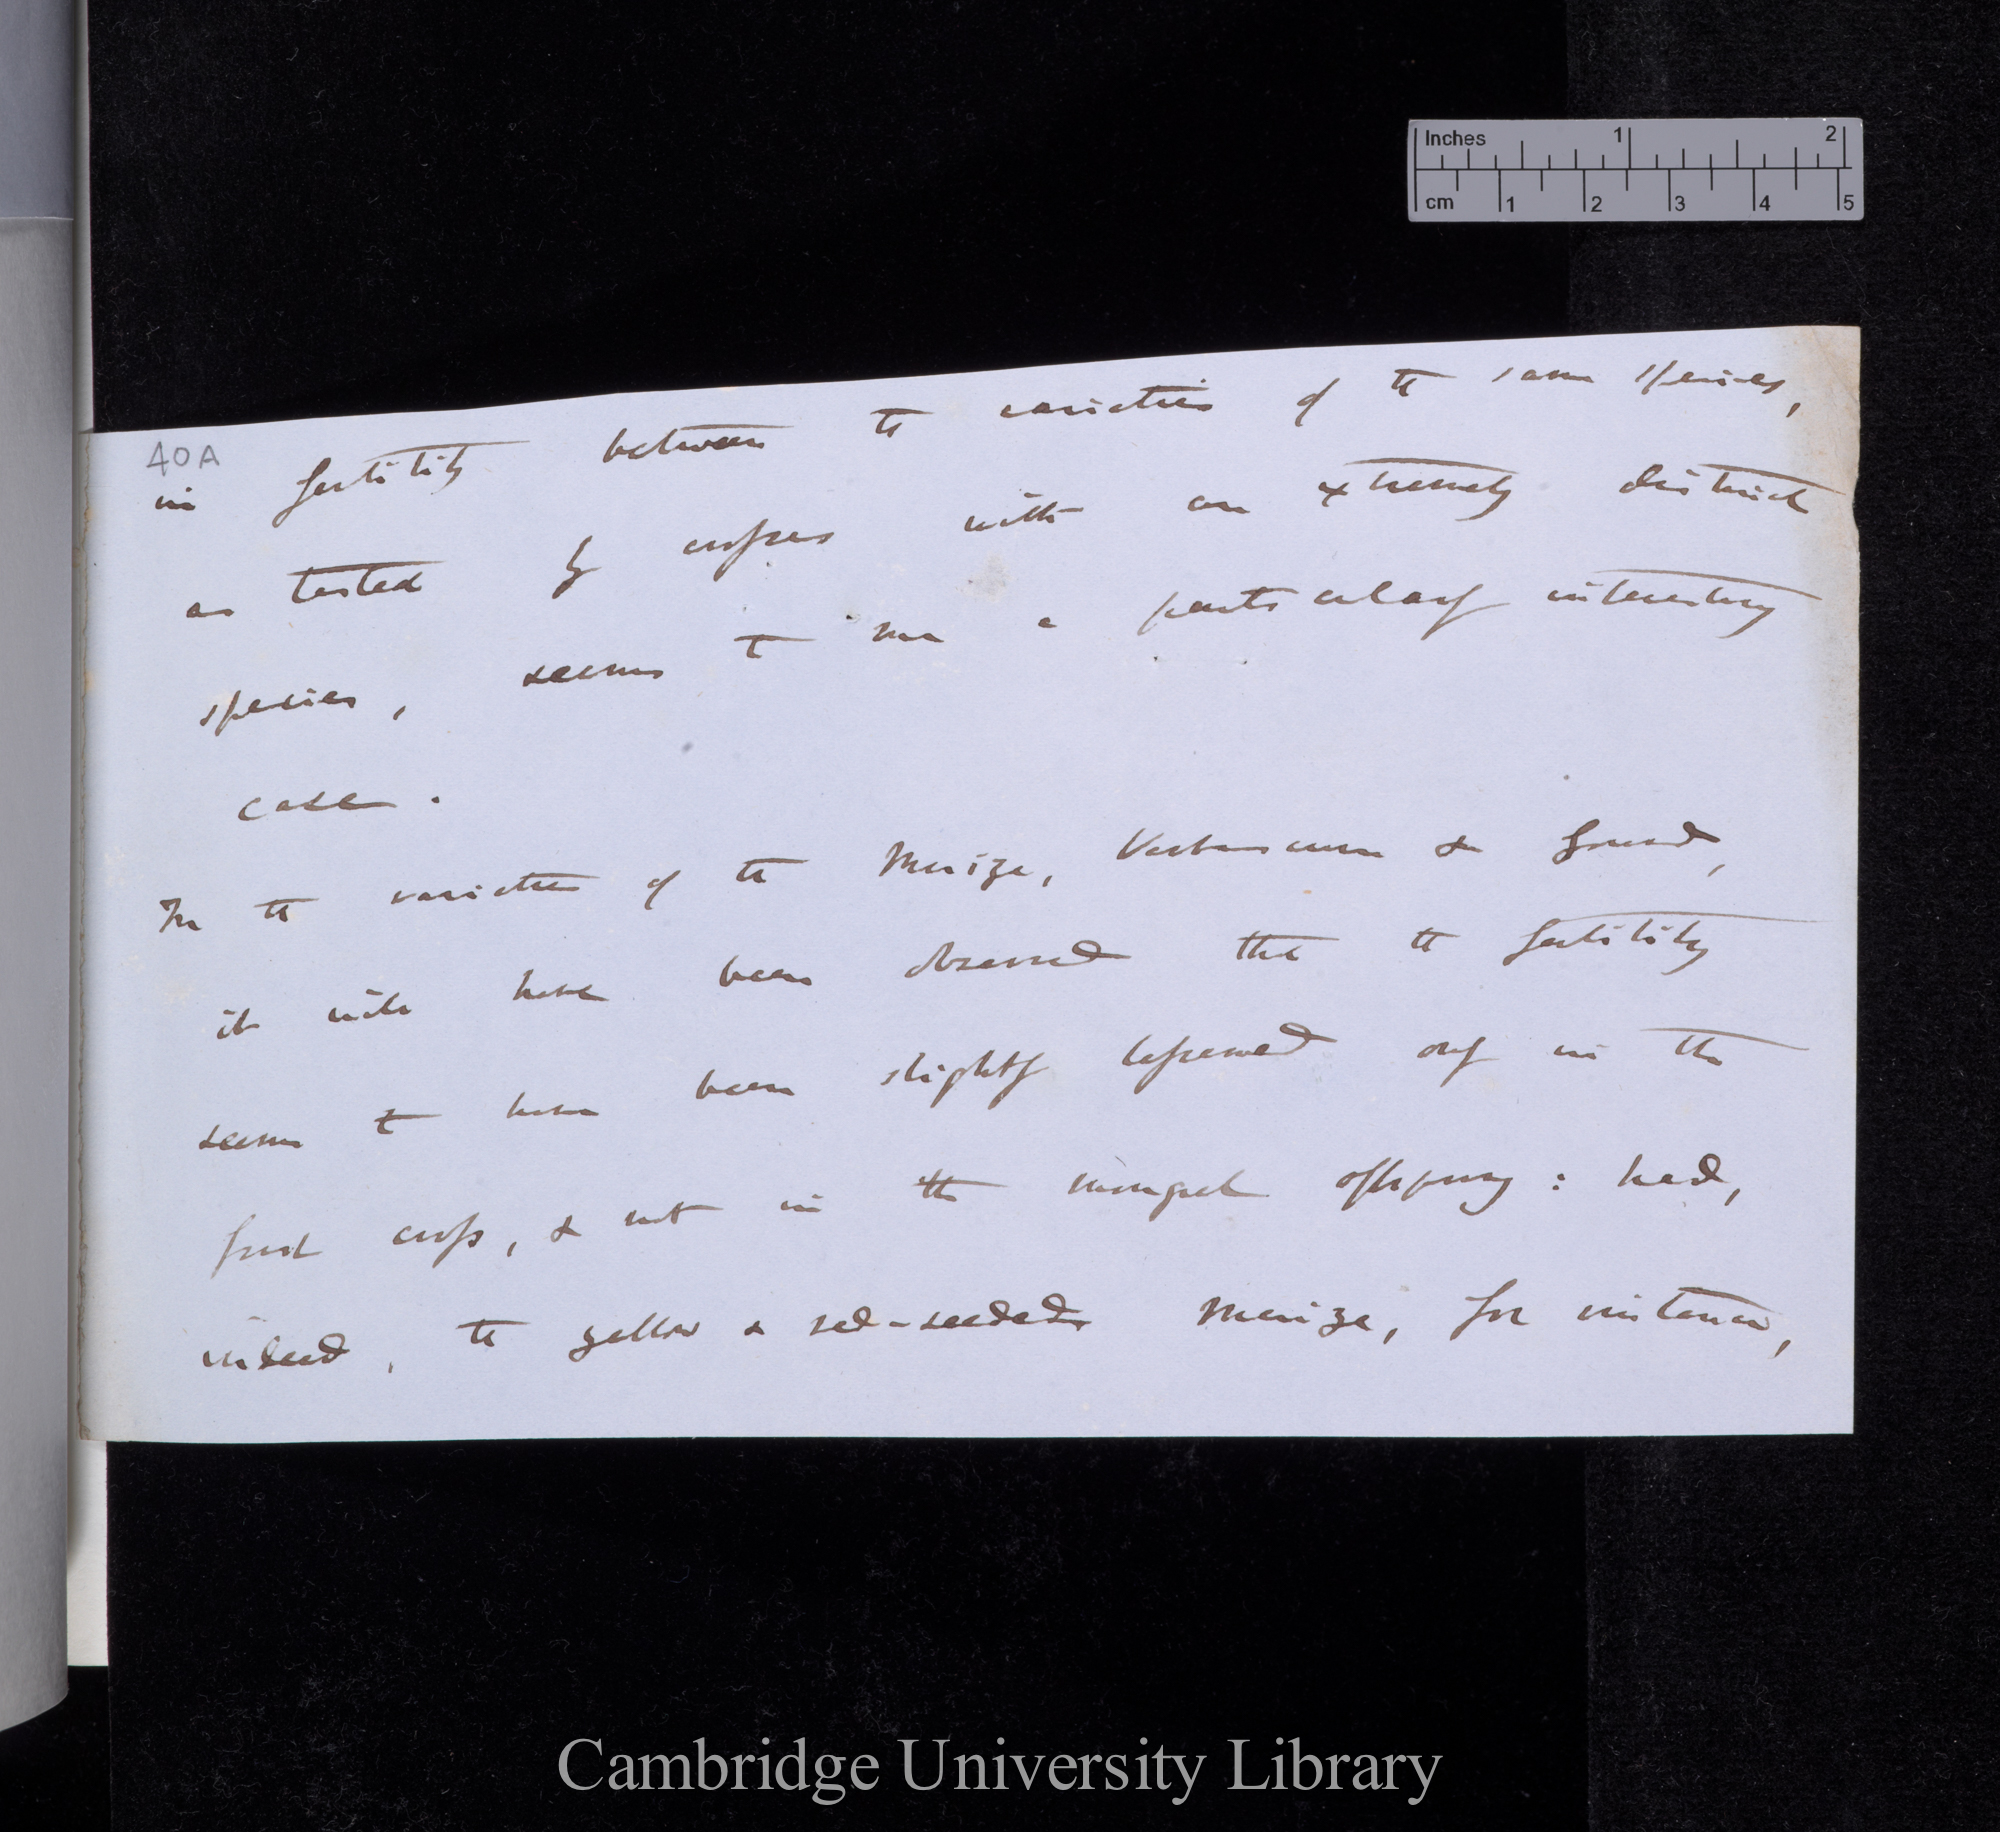 Inches 1 2
cm 1 2 3 4 5
40A
in fertility between the varieties of the same species,
as tested by crosses with an extremely distinct
species, seems to me a particularly interesting
case.
In the varieties of the Maize, Verbascum & Gourd,
it will have been observed that the fertility
seems to have been slightly lessened only in the
first cross, & not in the mongrel offspring: had,
indeed, the yellow & red-seeded Maize, for instance,
Cambridge University Library